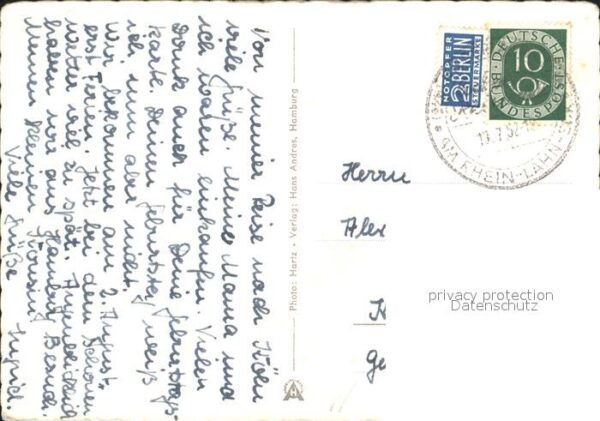 Von meiner Reise nach Köln
viele Grüße. Meine Mama und
ich waren einkaufen. Vielen
Dank auch für Deine Geburtstags-
karte. Deinen Geburtstag weiß
ich nun aber nicht.
Wir bekommen am 2. August
erst Ferien. Jetzt bei dem schönen
Wetter viel zu spät. Augenblicklich
haben wir aus Hamburg Besuch
meinen kleinen
Viele Grüße
Ingrid.
Photo: Hartz - Verlag: Hans Andres, Hamburg
NOTOPFER
2 BERLIN
STEUERMARKE
DEUTSCHE
BUNDESPOST
10
13.7.52
AM RHEIN-LAHN
Herrn
Alex
K
Ge
privacy protection
Datenschutz